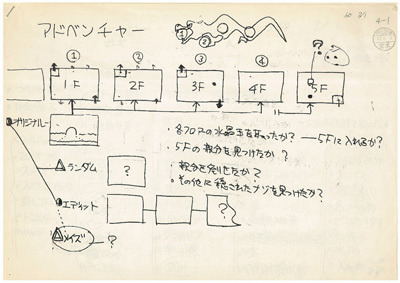 アドベンチャー
4-1
① ② ③ ④ ⑤
1F 2F 3F 4F 5F
オリジナル
・各フロアの水晶玉を取ったか? ― 5Fに入れるか?
・5Fの親分を見つけたか?
・親分を倒せたか?
・その他に隠されたナゾを見つけたか?
ランダム
?
エディット
?
メイズ
?